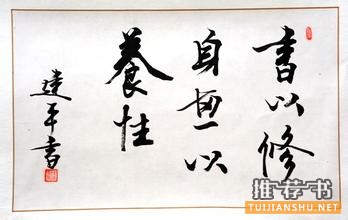 書以修
身畫以
養性
達平書
推荐书
TUIJIANSHU.NET